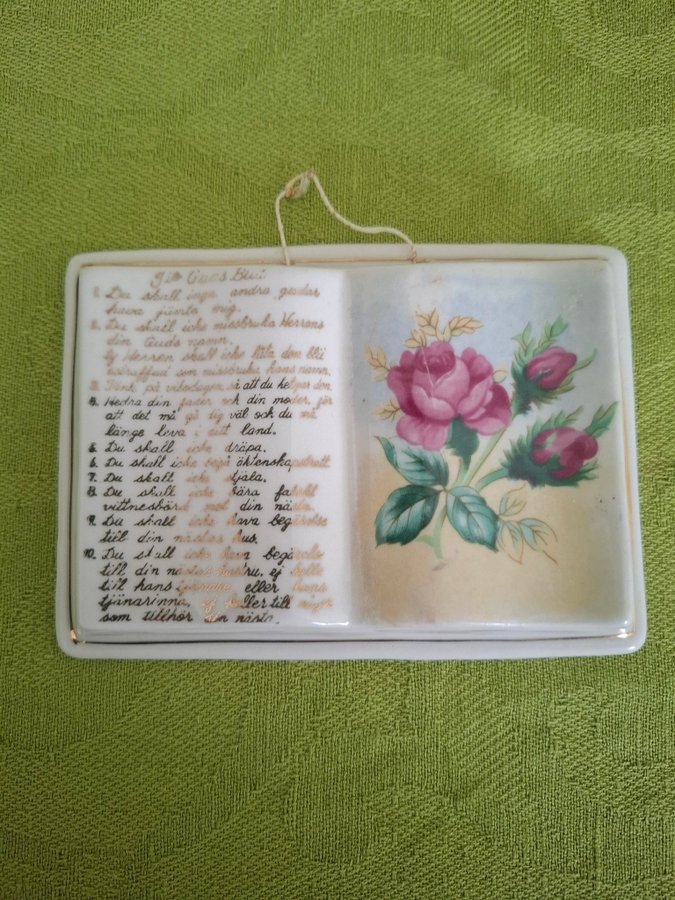 Tio Guds Bud
1. Du skall inga andra gudar
hava jämte mig.
2. Du skall icke missbruka Herrens
din Guds namn.
ty Herren skall icke låta den bli
ostraffad som missbrukar hans namn.
3. Tänk på vilodagen så att du helgar den.
4. Hedra din fader och din moder, för
att det må gå dig väl och du må
länge leva i ditt land.
5. Du skall icke dräpa.
6. Du skall icke begå äktenskapsbrott
7. Du skall icke stjäla.
8. Du skall icke bära falskt
vittnesbörd mot din nästa.
9. Du skall icke hava begärelse
till din nästas hus.
10. Du skall icke hava begärelse
till din nästas hustru, ej heller
till hans tjänare eller hans
tjänarinna, ej heller till något
som tillhör din nästa.